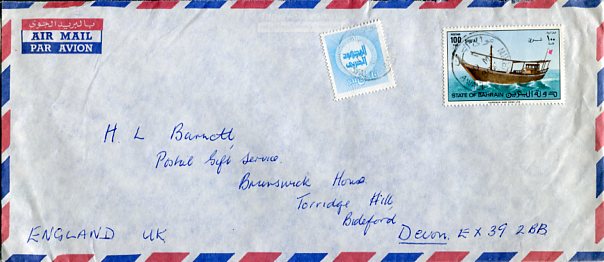 بالبريد الجوي
AIR MAIL
PAR AVION
100
١٠٠
STATE OF BAHRAIN دولة البحرين
H L Barnett
Postal Gift Service.
Brunswick House
Torridge Hill
Bideford
Devon. EX 39 2BB
ENGLAND UK